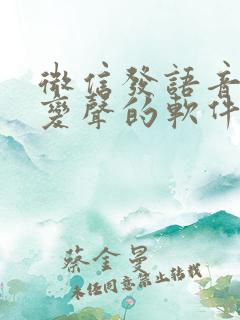 微信發語音
變聲的軟件
蔡金曼
未经同意禁止转载